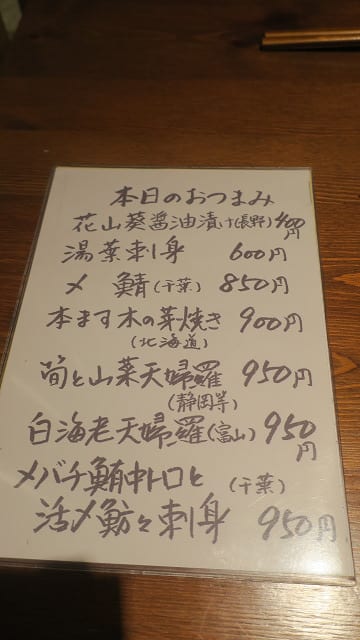 本日のおつまみ
花山葵醤油漬け(長野)400円
湯葉刺身 600円
〆鯖(千葉) 850円
本ます木の芽焼き 900円
(北海道)
筍と山菜天婦羅 950円
(静岡等)
白海老天婦羅(富山) 950円
メバチ鮪中トロと (千葉)
活〆魴々刺身 950円